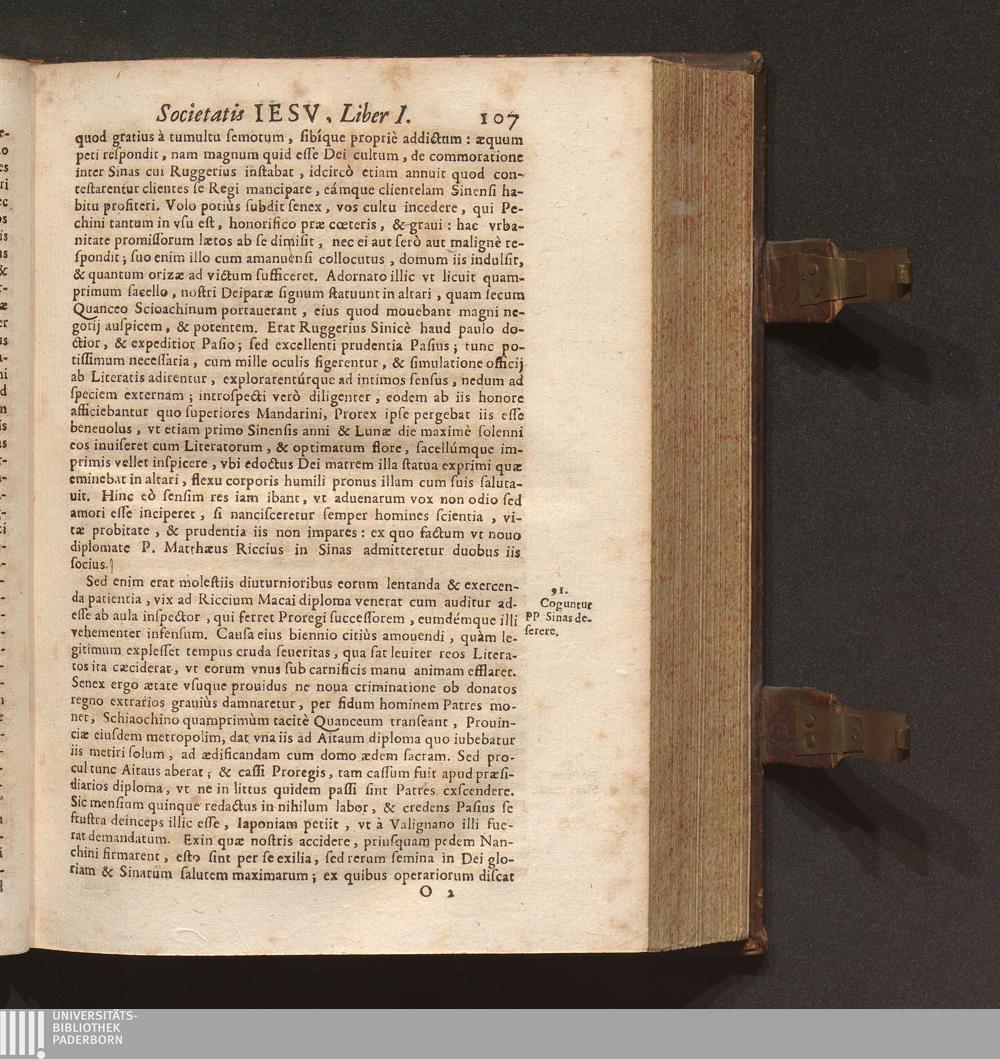 Societatis IESV, Liber I. 107
quod gratius à tumultu ſemotum, ſibíque propriè addictum: æquum
peti reſpondit, nam magnum quid eſſe Dei cultum, de commoratione
inter Sinas cui Ruggerius inſtabat, idcircò etiam annuit quod con-
teſtarentur clientes ſe Regi mancipare, eámque clientelam Sinenſi ha-
bitu profiteri. Volo potiùs ſubdit ſenex, vos cultu incedere, qui Pe-
chini tantum in vſu eſt, honorifico præ cœteris, & graui: hac vrba-
nitate promiſſorum lætos ab ſe dimiſit, nec ei aut ſerò aut malignè re-
ſpondit; ſuo enim illo cum amanuenſi collocutus, domum iis indulſit,
& quantum orizæ ad victum ſufficeret. Adornato illic vt licuit quam-
primum ſacello, noſtri Deiparæ ſignum ſtatuunt in altari, quam ſecum
Quanceo Scioachinum portauerant, eius quod mouebant magni ne-
gotij auſpicem, & potentem. Erat Ruggerius Sinicè haud paulo do-
ctior, & expeditior Paſio; ſed excellenti prudentia Paſius; tunc po-
tiſſimum neceſſaria, cum mille oculis figerentur, & ſimulatione officij
ab Literatis adirentur, explorarentúrque ad intimos ſenſus, nedum ad
ſpeciem externam; introſpecti verò diligenter, eodem ab iis honore
afficiebantur quo ſuperiores Mandarini, Prorex ipſe pergebat iis eſſe
beneuolus, vt etiam primo Sinenſis anni & Lunæ die maximè ſolenni
eos inuiſeret cum Literatorum, & optimatum flore, ſacellúmque im-
primis vellet inſpicere, vbi edoctus Dei matrem illa ſtatua exprimi quæ
eminebat in altari, flexu corporis humili pronus illam cum ſuis ſaluta-
uit. Hinc eò ſenſim res iam ibant, vt aduenarum vox non odio ſed
amori eſſe inciperet, ſi nanciſceretur ſemper homines ſcientia, vi-
tæ probitate, & prudentia iis non impares: ex quo factum vt nouo
diplomate P. Matthæus Riccius in Sinas admitteretur duobus iis
ſocius.
Sed enim erat moleſtiis diuturnioribus eorum lentanda & exercen-
da patientia, vix ad Riccium Macai diploma venerat cum auditur ad-
eſſe ab aula inſpector, qui ferret Proregi ſucceſſorem, eumdémque illi
vehementer infenſum. Cauſa eius biennio citiùs amouendi, quàm le-
gitimum expleſſet tempus cruda ſeueritas, qua ſat leuiter reos Litera-
tos ita cæciderat, vt eorum vnus ſub carnificis manu animam efflaret.
Senex ergo ætate vſuque prouidus ne noua criminatione ob donatos
regno extrarios grauiùs damnaretur, per fidum hominem Patres mo-
net, Schiaochino quamprimùm tacitè Quanceum tranſeant, Prouin-
ciæ eiuſdem metropolim, dat vna iis ad Aitaum diploma quo iubebatur
iis metiri ſolum, ad ædificandam cum domo ædem ſacram. Sed pro-
cul tunc Aitaus aberat; & caſſi Proregis, tam caſſum fuit apud præſi-
diarios diploma, vt ne in littus quidem paſſi ſint Patres exſcendere.
Sic menſium quinque redactus in nihilum labor, & credens Paſius ſe
fruſtra deinceps illic eſſe, Iaponiam petiit, vt à Valignano illi fue-
rat demandatum. Exin quæ noſtris accidere, priuſquam pedem Nan-
chini firmarent, eſto ſint per ſe exilia, ſed rerum ſemina in Dei glo-
riam & Sinarum ſalutem maximarum; ex quibus operariorum diſcat
O 2
91.
Coguntur
PP Sinas de-
ſerere.
UNIVERSITÄTS-
BIBLIOTHEK
PADERBORN